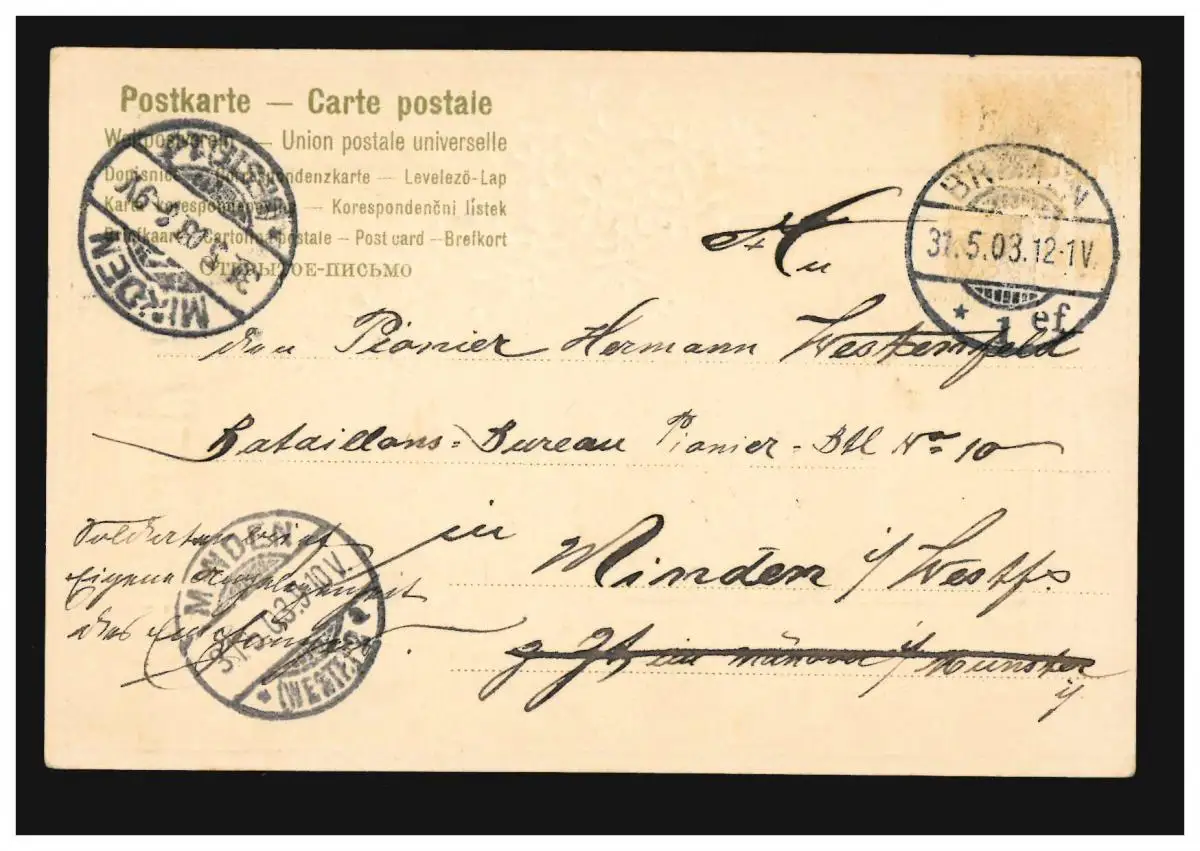 Postkarte — Carte postale
Weltpostverein — Union postale universelle
Dopisnice — Correspondenzkarte — Levelező-Lap
Karta korespondencyjna — Korespondenční lístek
Briefkaart — Cartolina postale — Post card — Brefkort
Открытое-письмо
MINDEN
BREMEN
31.5.03.12-1V.
* 1 ef
An
den Pionier Hermann Westemfeld
Bataillons-Bureau Pionier-Btl No 10
in Minden i/ Westfs
z. Zt. im i/ Munster
i/
Soldatenbrief
Eigene Angelegenheit
des Empfängers
MINDEN
31.5.03.9-10V.
* (WESTF.) a